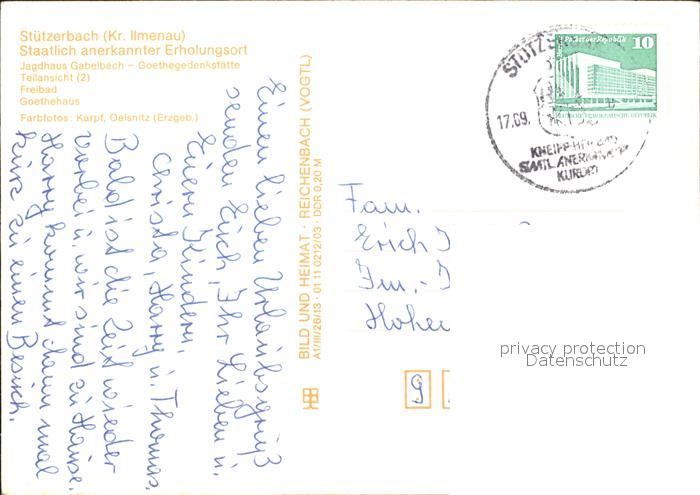 Stützerbach (Kr. Ilmenau)
Staatlich anerkannter Erholungsort
Jagdhaus Gabelbach – Goethegedenkstätte
Teilansicht (2)
Freibad
Goethehaus
Farbfotos: Karpf, Oelsnitz (Erzgeb.)
Einen lieben Urlaubsgruß
senden Euch, Ihr Lieben u.
Euern Kindern,
Christa, Harry u. Thomas.
Bald ist die Zeit wieder
vorbei u. wir sind zu Hause.
Harry kommt dann mal
kurz zu einen Besuch.
BILD UND HEIMAT · REICHENBACH (VOGTL)
A1/III/26/13 · 01 11 0212/03 · DDR 0,20 M
10
17.09.
KNEIPP
STAATL. ANERKANNTER
KURORT
Fam.
Erich
Hohen
9
privacy protection
Datenschutz